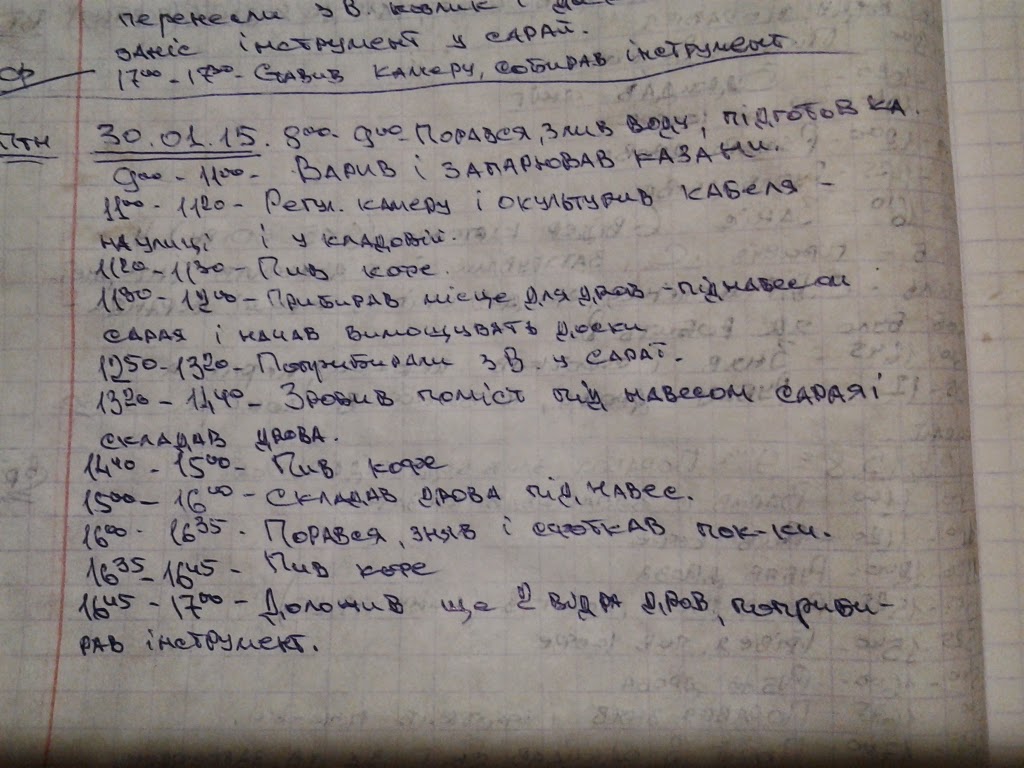 перенесли з В. козлик і
заніс інструмент у сарай.
ср 17⁰⁰ - 17³⁰ - Ставив камеру, собирав інструмент
Птн 30.01.15. 8⁰⁰ - 9⁰⁰ Порався, злив воду, підготовка.
9⁰⁰ - 11⁰⁰ - Варив і запарював казани.
11⁰⁰ - 11²⁰ - Регул. камеру і окультурив кабеля -
на улиці і у кладовій.
11²⁰ - 11³⁰ - Пив кофе.
11³⁰ - 12⁰⁰ - Прибирав місце для дров - під навесом
сарая і начав вимощивать доски
12⁵⁰ - 13²⁰ - Поприбирали з В. у сараї.
13²⁰ - 14⁴⁰ - Зробив поміст під навесом сарая і
складав дрова.
14⁴⁰ - 15⁰⁰ - Пив кофе
15⁰⁰ - 16⁰⁰ - Складав дрова під навес.
16⁰⁰ - 16³⁵ - Порався, зняв і пок-ки.
16³⁵ - 16⁴⁵ - Пив кофе
16⁴⁵ - 17⁰⁰ - Доложив ще 2 відра дров, поприби-
рав інструмент.